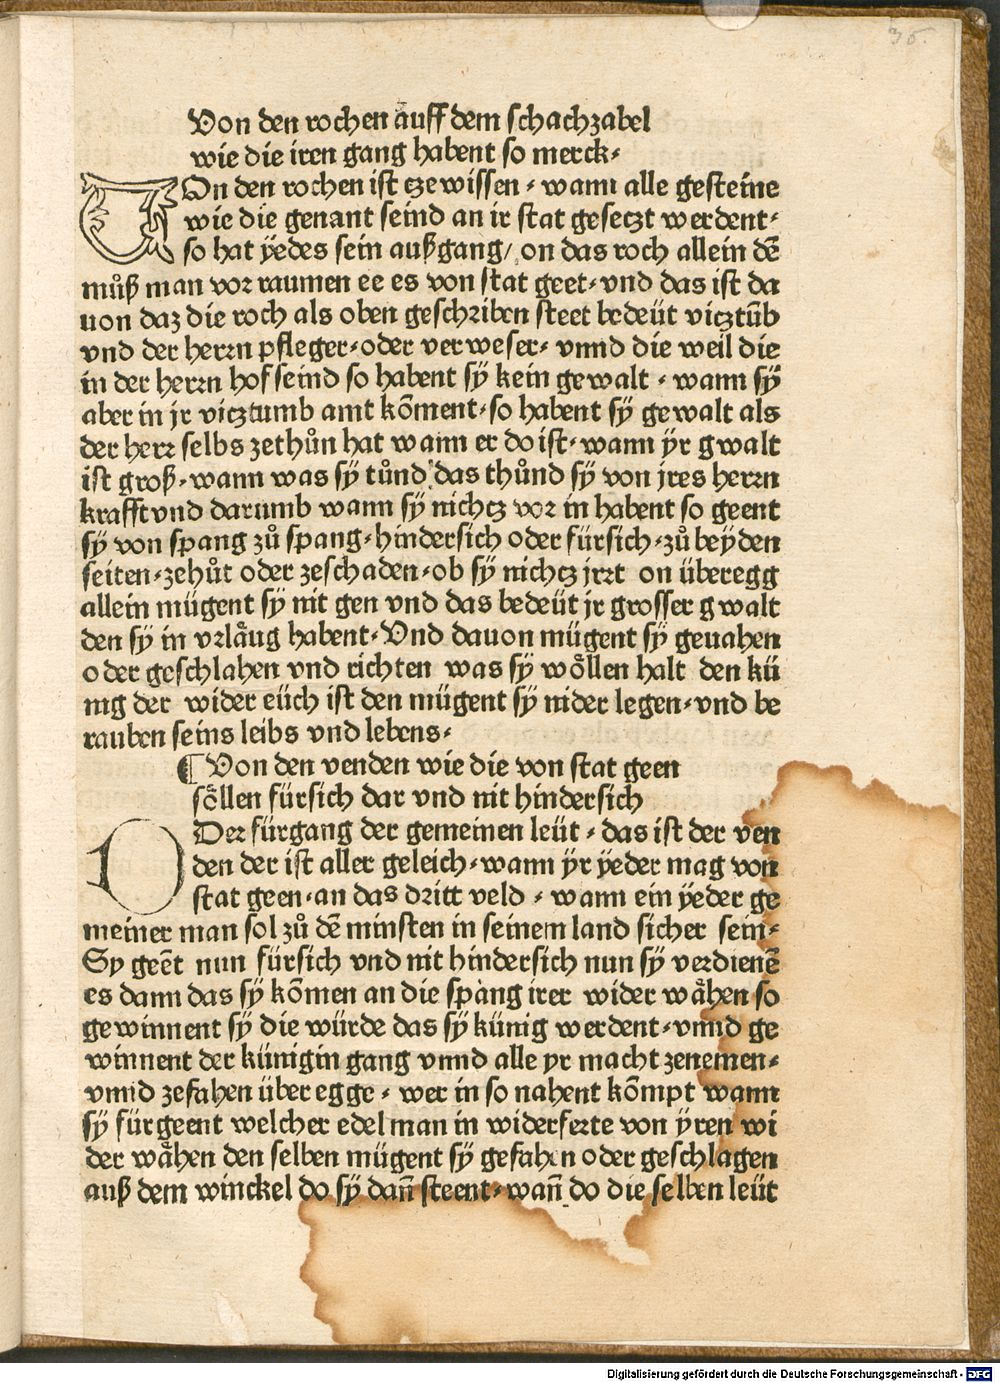 35.
Von den rochen auff dem schachzabel
wie die iren gang habent so merck·
VOn den rochen ist cze wissen · wann alle gesteine
wie die genant seind an ir stat geseczt werdent·
so hat ÿedes sein außgang/ on das roch allein dē
můß man vor raumen ee es von stat geet·vnd das ist da
uon daz die roch als oben geschriben steet bedeüt vicztūb
vnd der herrn pfleger·oder verweser· vnnd die weil die
in der herrn hof seind so habent sÿ kein gewalt · wann sÿ
aber in jr vicztumb amt kōment·so habent sÿ gewalt als
der herr selbs zethůn hat wann er do ist· wann ÿr gwalt
ist groß·wann was sÿ tůnd das thůnd sÿ von jres herrn
krafft vnd darumb wann sÿ nichcz vor in habent so geent
sÿ von spang zů spang·hindersich oder fürsich·zů beÿden
seiten·zehůt oder zeschaden·ob sÿ nichcz jrrt on überegg
allein mügent sÿ nit gen vnd das bedeüt jr grosser gwalt
den sÿ in vrlaͤug habent·Vnd dauon mügent sÿ geuahen
oder geschlahen vnd richten was sÿ woͤllen halt den kü
nig der wider eüch ist den mügent sÿ nider legen·vnd be
rauben seins leibs vnd lebens·
¶ Von den venden wie die von stat geen
soͤllen fürsich dar vnd nit hindersich
DEr fürgang der gemeinen leüt · das ist der ven
den der ist aller geleich·wann ÿr ÿeder mag von
stat geen·an das dritt veld · wann ein ÿeder ge
meiner man sol zů dē minsten in seinem land sicher sein·
Sy geēt nun fürsich vnd nit hindersich nun sÿ verdienē
es dann das sÿ kōmen an die spang irer wider waͤhen so
gewinnent sÿ die würde das sÿ künig werdent·vnnd ge
winnent der künigin gang vnnd alle yr macht zenemen·
vnnd zefahen über egge · wer in so nahent kōmpt wann
sÿ fürgeent welcher edel man in widerferte von ÿren wi
der waͤhen den selben mügent sÿ gefahen oder geschlagen
auß dem winckel do sÿ dañ steent·wañ do die selben leüt
Digitalisierung gefördert durch die Deutsche Forschungsgemeinschaft - DFG